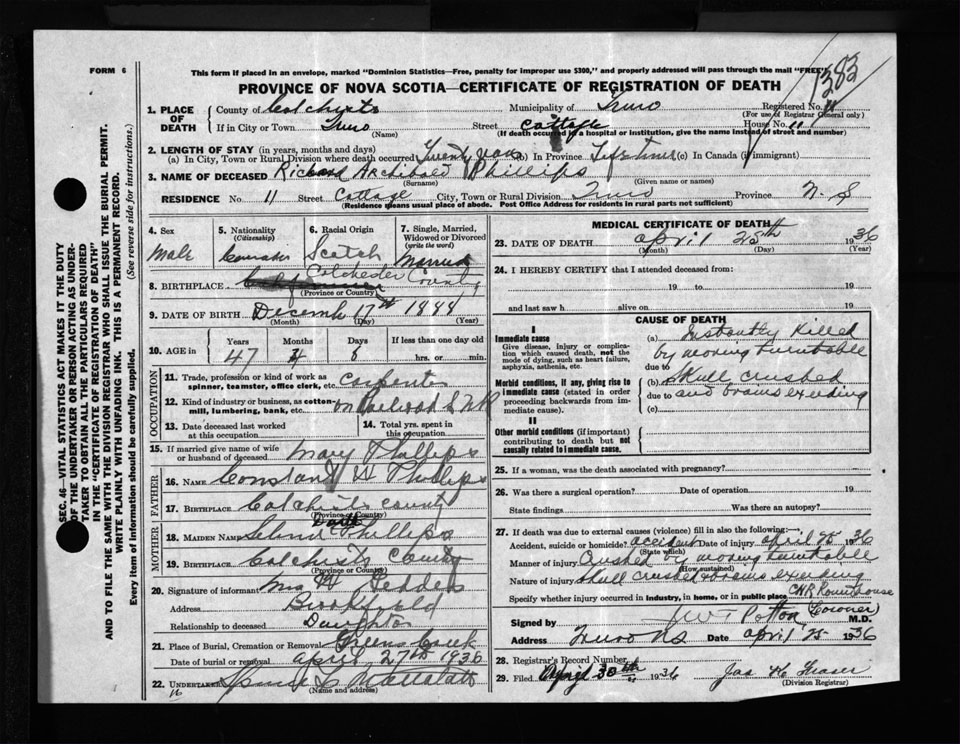 1383
FORM 6
This form if placed in an envelope, marked "Dominion Statistics—Free, penalty for improper use $300," and properly addressed will pass through the mail "FREE"
PROVINCE OF NOVA SCOTIA—CERTIFICATE OF REGISTRATION OF DEATH
1. PLACE OF DEATH County of Colchester Municipality of Truro Registered No.
(For use of Registrar General only)
If in City or Town Truro Street Cottage House No. 11
(Name) (If death occurred in a hospital or institution, give the name instead of street and number)
2. LENGTH OF STAY (in years, months and days)
(a) In City, Town or Rural Division where death occurred Twenty years (b) In Province Life time (c) In Canada (if immigrant)
3. NAME OF DECEASED Richard Archibald Phillips
(Surname) (Given name or names)
RESIDENCE No. 11 Street Cottage City, Town or Rural Division Truro Province N. S
(Residence means usual place of abode. Post Office Address for residents in rural parts not sufficient)
4. Sex Male
5. Nationality (Citizenship)
6. Racial Origin Scotch
7. Single, Married, Widowed or Divorced (write the word) Married
8. BIRTHPLACE Colchester County
(Province or Country)
9. DATE OF BIRTH Decemb 17th 1888
(Month) (Day) (Year)
10. AGE in Years 47 Months 4 Days 8 If less than one day old hrs. or min.
OCCUPATION
11. Trade, profession or kind of work as spinner, teamster, office clerk, etc. Carpenter
12. Kind of industry or business, as cotton-mill, lumbering, bank, etc. on Railroad
13. Date deceased last worked at this occupation
14. Total yrs. spent in this occupation
15. If married give name of wife or husband of deceased Mary Phillips
FATHER
16. NAME H Phillips
17. BIRTHPLACE Colchester County
(Province or Country)
MOTHER
18. MAIDEN NAME Phillips
19. BIRTHPLACE Colchester County
(Province or Country)
20. Signature of informant Mrs
Address Brookfield
Relationship to deceased Daughter
21. Place of Burial, Cremation or Removal Greens Creek
Date of burial or removal april 27th 1936
22. UNDERTAKER
(Name and address)
16
MEDICAL CERTIFICATE OF DEATH
23. DATE OF DEATH April 25th 1936
(Month) (Day) (Year)
24. I HEREBY CERTIFY that I attended deceased from:
19 to 19
and last saw h alive on 19
CAUSE OF DEATH
I
Immediate cause
Give disease, injury or complication which caused death, not the mode of dying, such as heart failure, asphyxia, asthenia, etc.
Morbid conditions, if any, giving rise to immediate cause (stated in order proceeding backwards from immediate cause).
II
Other morbid conditions (if important) contributing to death but not causally related to immediate cause.
(a) Instantly killed
by moving turntable
due to
(b) Skull crushed
due to and brains exuding
(c)
25. If a woman, was the death associated with pregnancy?
26. Was there a surgical operation? Date of operation 19
State findings Was there an autopsy?
27. If death was due to external causes (violence) fill in also the following:—
Accident, suicide or homicide? accident Date of injury april 25 1936
(State which)
Manner of injury Crushed by moving turntable
(How sustained)
Nature of injury Skull crushed & brains exuding
Specify whether injury occurred in industry, in home, or in public place CNR Roundhouse
Signed by (Coroner) M.D.
Address Truro NS Date april 25 1936
28. Registrar's Record Number
29. Filed April 30th 1936
(Division Registrar)
SEC. 46—VITAL STATISTICS ACT MAKES IT THE DUTY
OF THE UNDERTAKER OR PERSON ACTING AS UNDERTAKER TO OBTAIN ALL THE PARTICULARS REQUIRED
IN THE "CERTIFICATE OF REGISTRATION OF DEATH"
AND TO FILE THE SAME WITH THE DIVISION REGISTRAR WHO SHALL ISSUE THE BURIAL PERMIT.
WRITE PLAINLY WITH UNFADING INK. THIS IS A PERMANENT RECORD.
Every item of information should be carefully supplied. (See reverse side for instructions.)